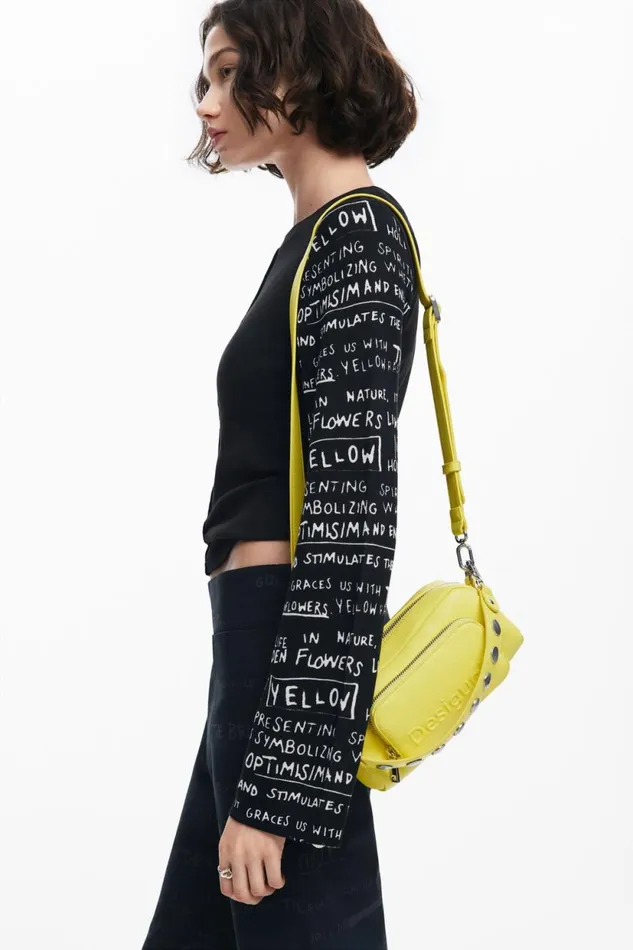 ELLOW
ESENTING SPIRIT
SYMBOLIZING WH
OPTIMISIMAND EN
AND STIMULATES THE
GRACES US WITH
ERS. YELLOW
IN NATURE,
FLOWERS LI
ELLOW
SENTING SPI
MBOLIZING W
OPTIMISIMAND EN
D STIMULATES THE
GRACES US WITH
FLOWERS. YELLOW
LIFE IN NATURE,
DEN FLOWERS L
YELLOW
PRESENTING SP
SYMBOLIZING W
OPTIMISIMAND
AND STIMULATES
IT GRACES US WITH
Desigual